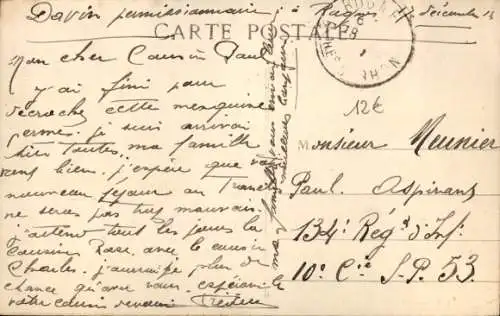 Davin permissionnaire à Rognes 17 décembre 18
CARTE POSTALE
Mon cher Cousin Paul
J'ai fini pour
décroche cette mesquine
perme. je suis arrivai
hier toutes ma famille
vons bien. j'espère que
nouveau sejour au
ne seras pas trop mauvais
j'attend tout les jours la
Cousine Rose avec le cousin
Charles. j'aurai plus de
chance qu'avec vous
votre cousin devoué
ma famille
meilleures
12€
Monsieur Meunier
Paul. Aspirant
134e Régt d'Inf.
10e Cie S.P. 53.
RHONE